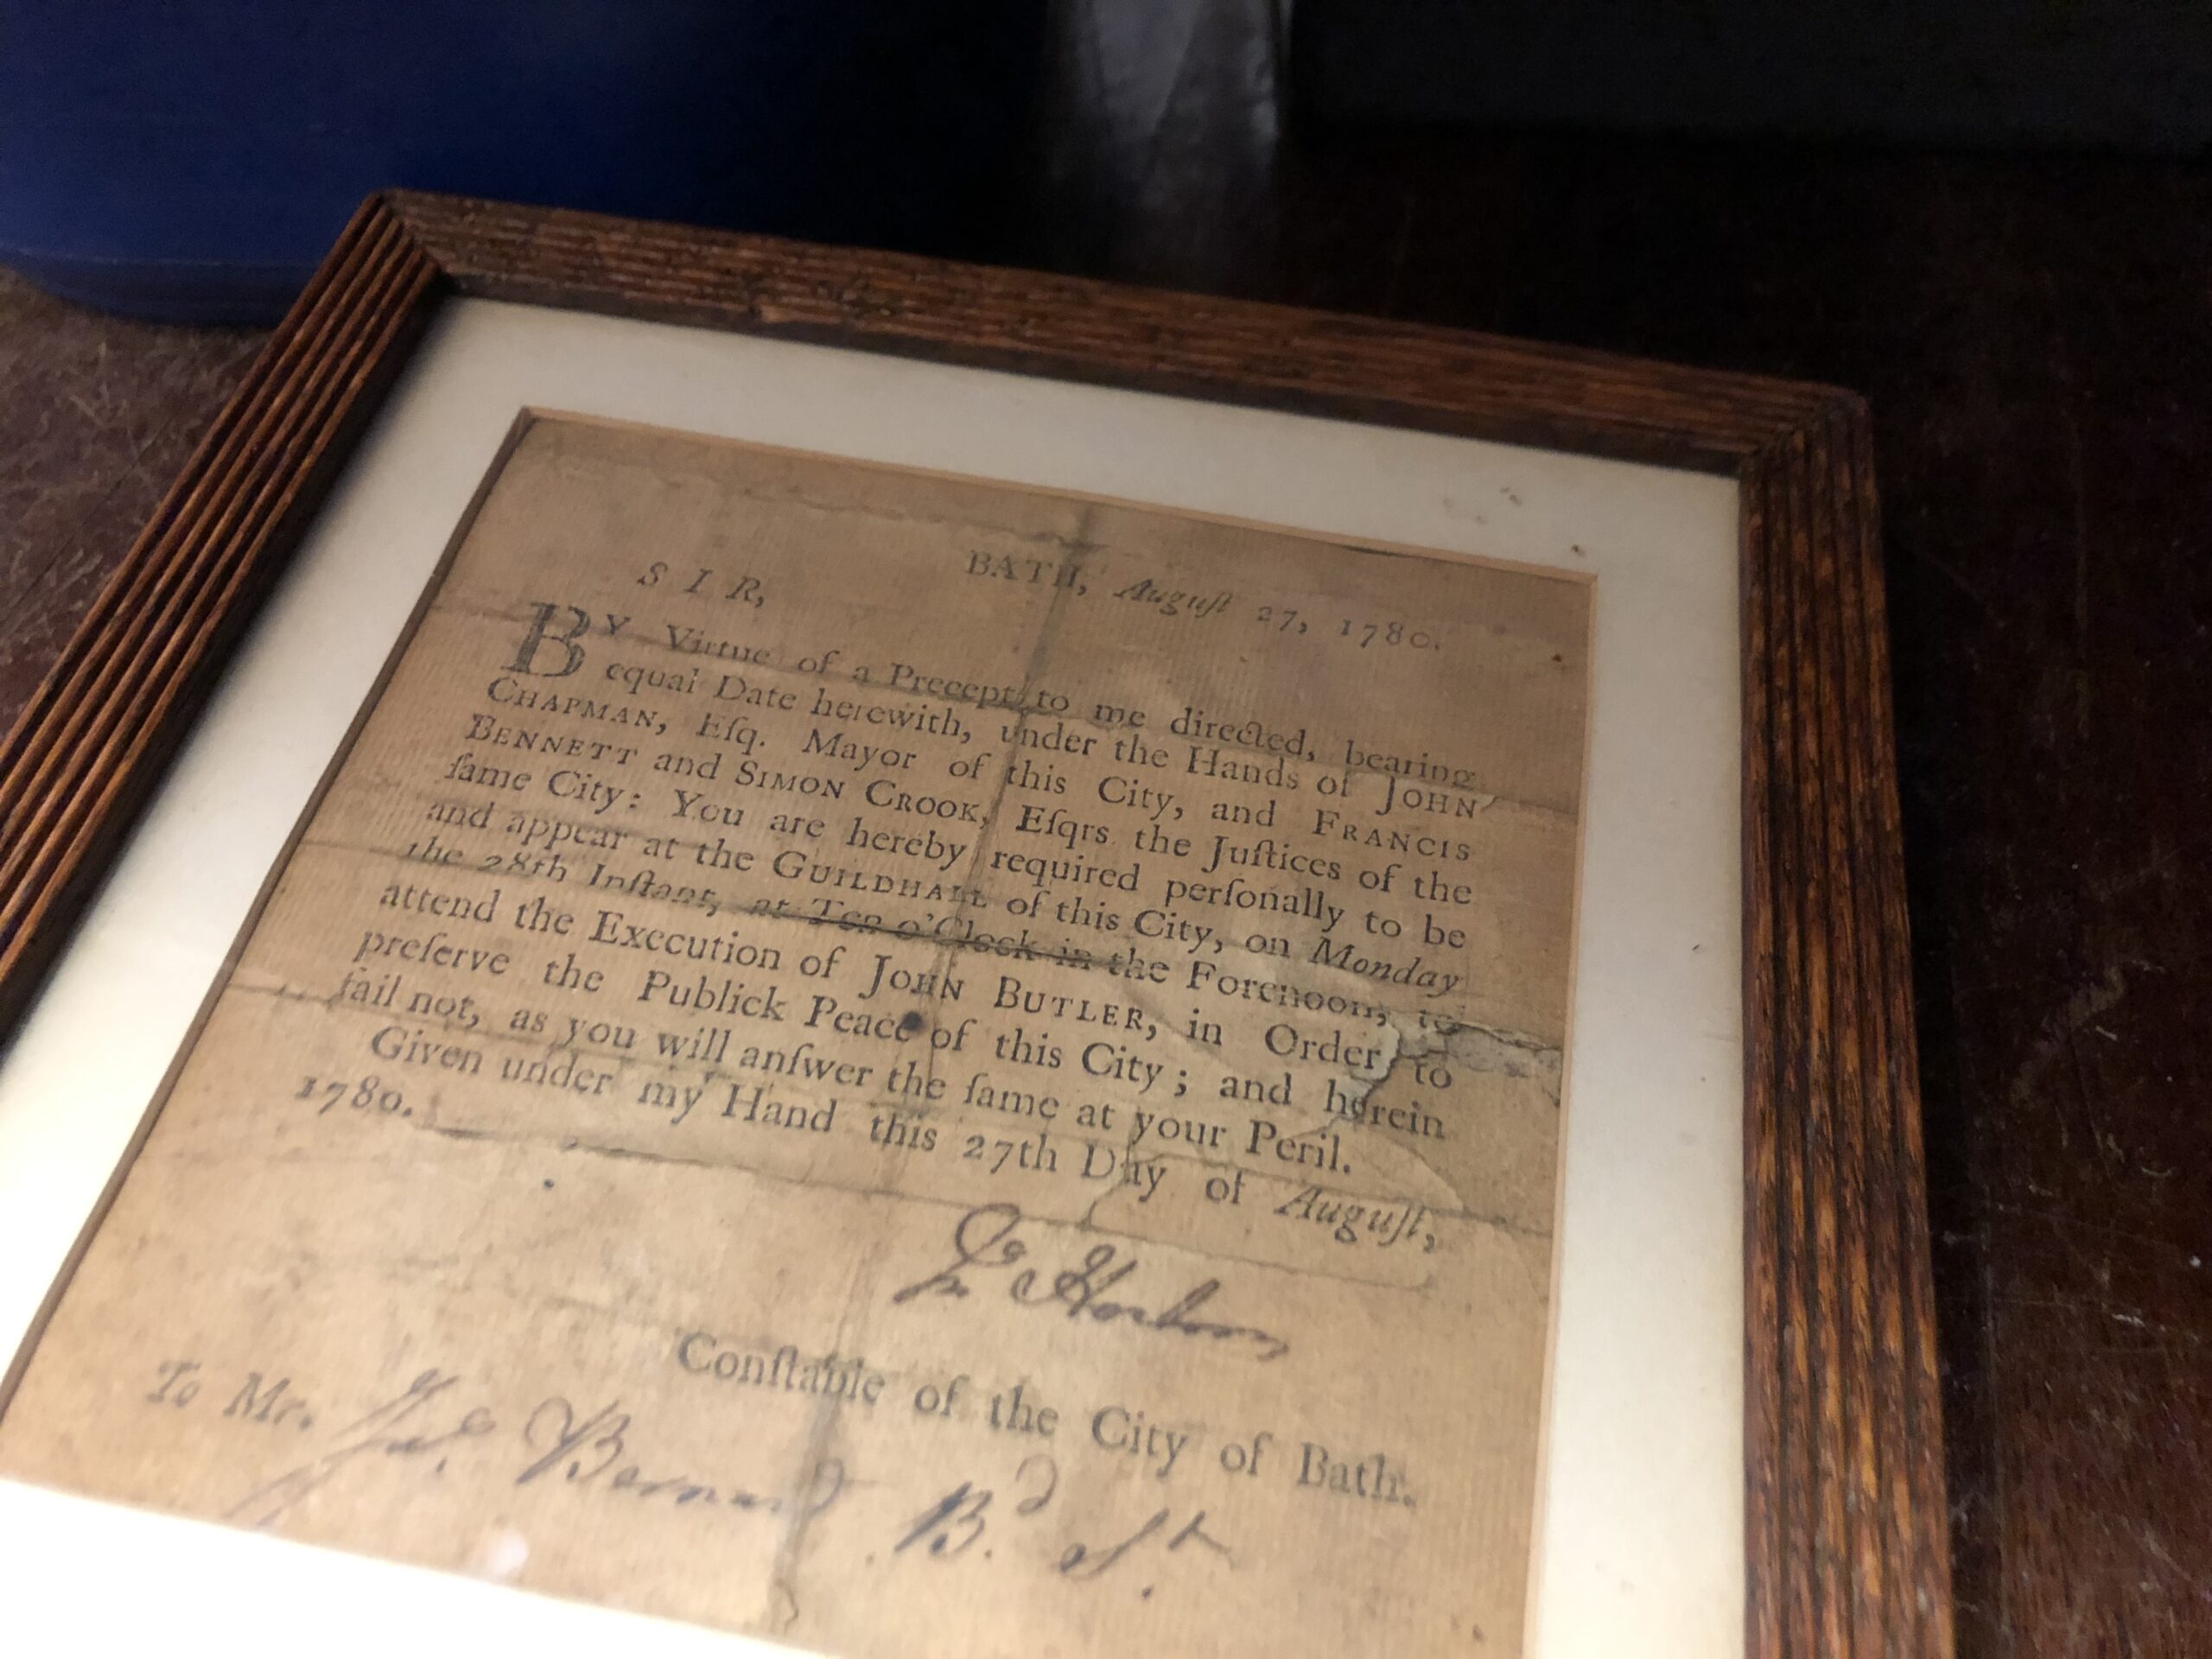 BATH, Auguſt 27, 1780.
S I R,
BY Virtue of a Precept to me directed, bearing
equal Date herewith, under the Hands of JOHN
CHAPMAN, Eſq. Mayor of this City, and FRANCIS
BENNETT and SIMON CROOK, Eſqrs the Juſtices of the
ſame City: You are hereby required perſonally to be
and appear at the GUILDHALL of this City, on Monday
the 28th Inſtant, at Ten o'Clock in the Forenoon, to
attend the Execution of JOHN BUTLER, in Order to
preſerve the Publick Peace of this City; and herein
fail not, as you will anſwer the ſame at your Peril.
Given under my Hand this 27th Day of Auguſt,
1780.
Conſtable of the City of Bath.
To Mr. Bernard B.d St.